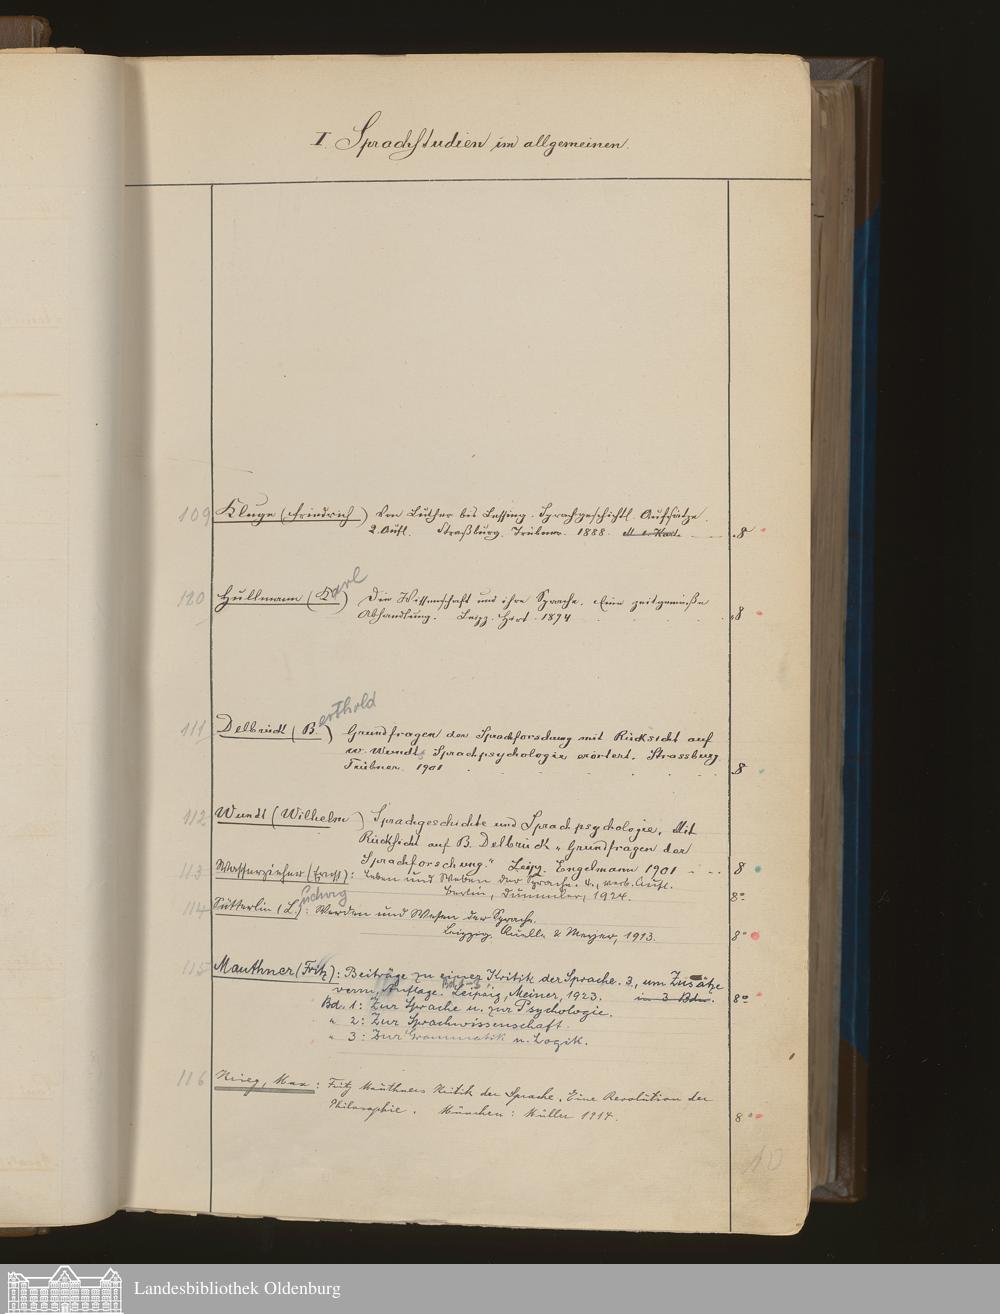 I. Sprachstudien im allgemeinen.
109 Kluge (Friedrich) Von Luther bis Lessing. Sprachgeschichtl. Aufsätze.
2. Aufl. Straßburg. Trübner. 1888. 8
110 Hullmann (Karl) Die Wissenschaft und ihre Sprache. Eine zeitgemäße
Abhandlung. Leipz. 1894 8
111 Delbrück (Berthold) Grundfragen der Sprachforschung mit Rücksicht auf
W. Wundts Sprachpsychologie erörtert. Strassburg
Trübner. 1901 8
112 Wundt (Wilhelm) Sprachgeschichte und Sprachpsychologie. Mit
Rücksicht auf B. Delbrück „Grundfragen der
Sprachforschung." Leipz. Engelmann 1901 8
113 Wasserzieher (Ernst): Leben und Weben der Sprache. 4., verb. Aufl.
Berlin, Dümmler, 1924. 8°
114 Sütterlin (Ludwig): Werden und Wesen der Sprache.
Leipzig, Quelle & Meyer, 1913. 8°
115 Mauthner (Fritz): Beiträge zu einer Kritik der Sprache. 3., um Zusätze
verm. Auflage. Bd 1-3 Leipzig, Meiner, 1923. in 3 Bdn. 8°
Bd. 1: Zur Sprache u. zur Psychologie.
" 2: Zur Sprachwissenschaft.
" 3: Zur Grammatik u. Logik.
116 Krieg, Max: Fritz Mauthners Kritik der Sprache. Eine Revolution der
Philosophie. München: Müller 1914. 8°
10
Landesbibliothek Oldenburg